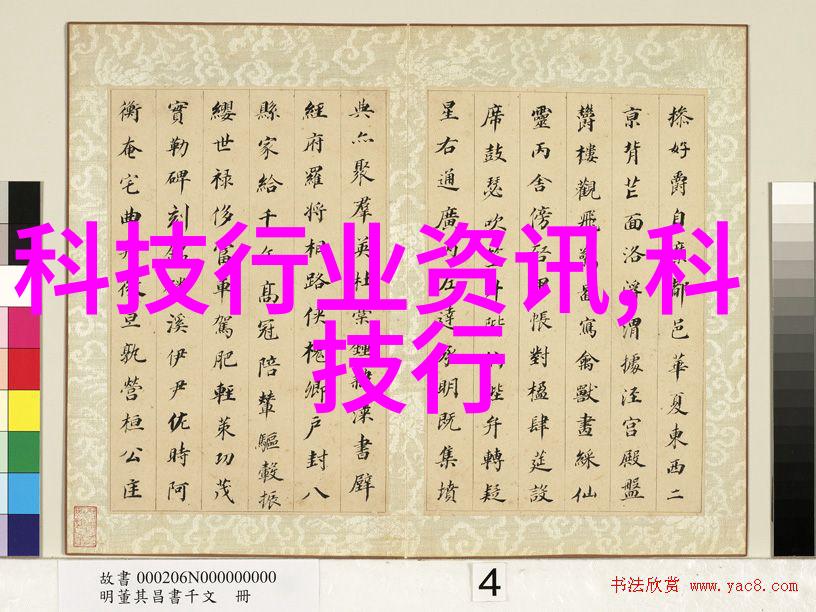 操好爵自縻都邑華夏東西二
京背芒面洛浮渭據涇宮殿盤
鬱樓觀飛驚圖寫禽獸畫綵仙
靈丙舍傍啓甲帳對楹肆筵設
席鼓瑟吹笙升階納陛弁轉疑
星右通廣內左達承明既集墳
典亦聚羣英杜稾鍾隸漆書壁
經府羅將相路俠槐卿戶封八
縣家給千兵高冠陪輦驅轂振
纓世祿侈富車駕肥輕策功茂
實勒碑刻銘磻溪伊尹佐時阿
衡奄宅曲阜微旦孰營桓公匡
科技行业资讯,科
技行
故書 000206N000000000
明董其昌書千文 冊
4
书法欣赏 www.yac8.com